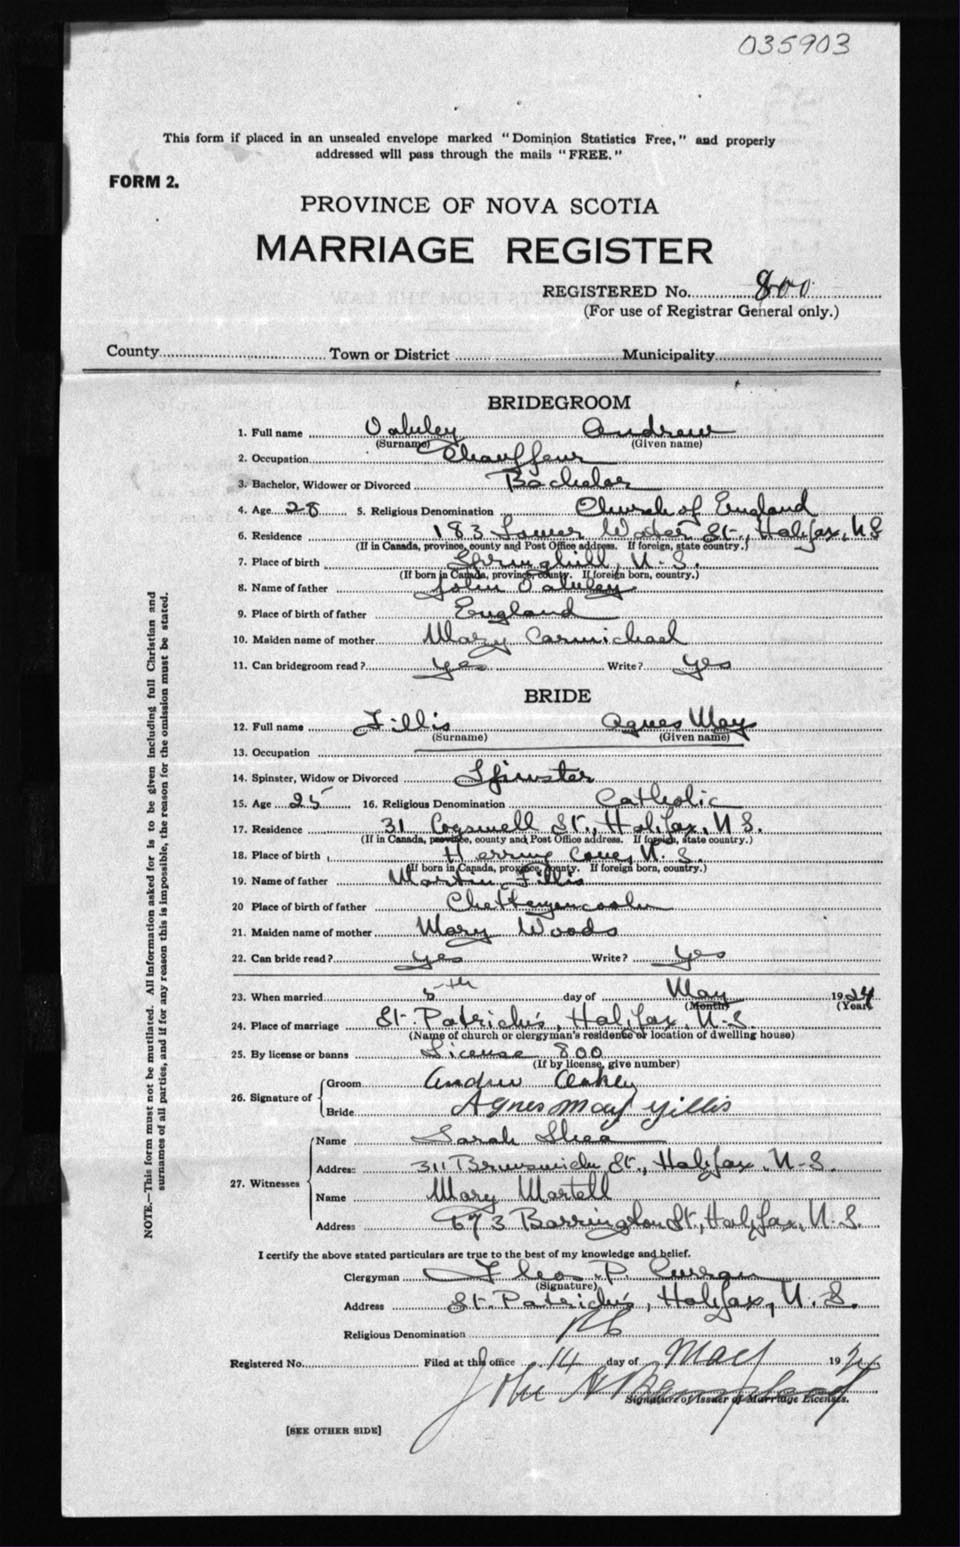 035903
This form if placed in an unsealed envelope marked "Dominion Statistics Free," and properly
addressed will pass through the mails "FREE."
FORM 2.
PROVINCE OF NOVA SCOTIA
MARRIAGE REGISTER
REGISTERED No. 800
(For use of Registrar General only.)
County Town or District Municipality
BRIDEGROOM
1. Full name Oakley Andrew
(Surname) (Given name)
2. Occupation Chauffeur
3. Bachelor, Widower or Divorced Bachelor
4. Age 28 5. Religious Denomination Church of England
6. Residence 183 Lower Water St., Halifax, N S
(If in Canada, province, county and Post Office address. If foreign, state country.)
7. Place of birth Springhill, N. S.
(If born in Canada, province, county. If foreign born, country.)
8. Name of father John Oakley
9. Place of birth of father England
10. Maiden name of mother Mary Carmichael
11. Can bridegroom read? yes Write? yes
BRIDE
12. Full name Fillis Agnes May
(Surname) (Given name)
13. Occupation
14. Spinster, Widow or Divorced Spinster
15. Age 25 16. Religious Denomination Catholic
17. Residence 31 Cogswell St., Halifax, N S.
(If in Canada, province, county and Post Office address. If foreign, state country.)
18. Place of birth Herring Cove, N. S.
(If born in Canada, province, county. If foreign born, country.)
19. Name of father Martin Fillis
20 Place of birth of father
21. Maiden name of mother Mary Woods
22. Can bride read? yes Write? yes
23. When married 5th day of May 1924
(Month) (Year)
24. Place of marriage St. Patrick's, Halifax, N. S.
(Name of church or clergyman's residence or location of dwelling house)
25. By license or banns License 800
(If by license, give number)
26. Signature of
Groom Andrew Oakley
Bride Agnes May Fillis
27. Witnesses
Name Sarah Shea
Address 311 Brunswick St., Halifax, N. S.
Name Mary Martell
Address 673 Barrington St., Halifax, N. S.
I certify the above stated particulars are true to the best of my knowledge and belief.
Clergyman P. Curran
(Signature)
Address St. Patrick's, Halifax, N. S.
Religious Denomination RC
Registered No. Filed at this office 14 day of May 1924
John H
Signature of Issuer of Marriage Licenses.
[SEE OTHER SIDE]
NOTE.—This form must not be mutilated. All information asked for is to be given including full Christian and
surnames of all parties, and if for any reason this is impossible, the reason for the omission must be stated.